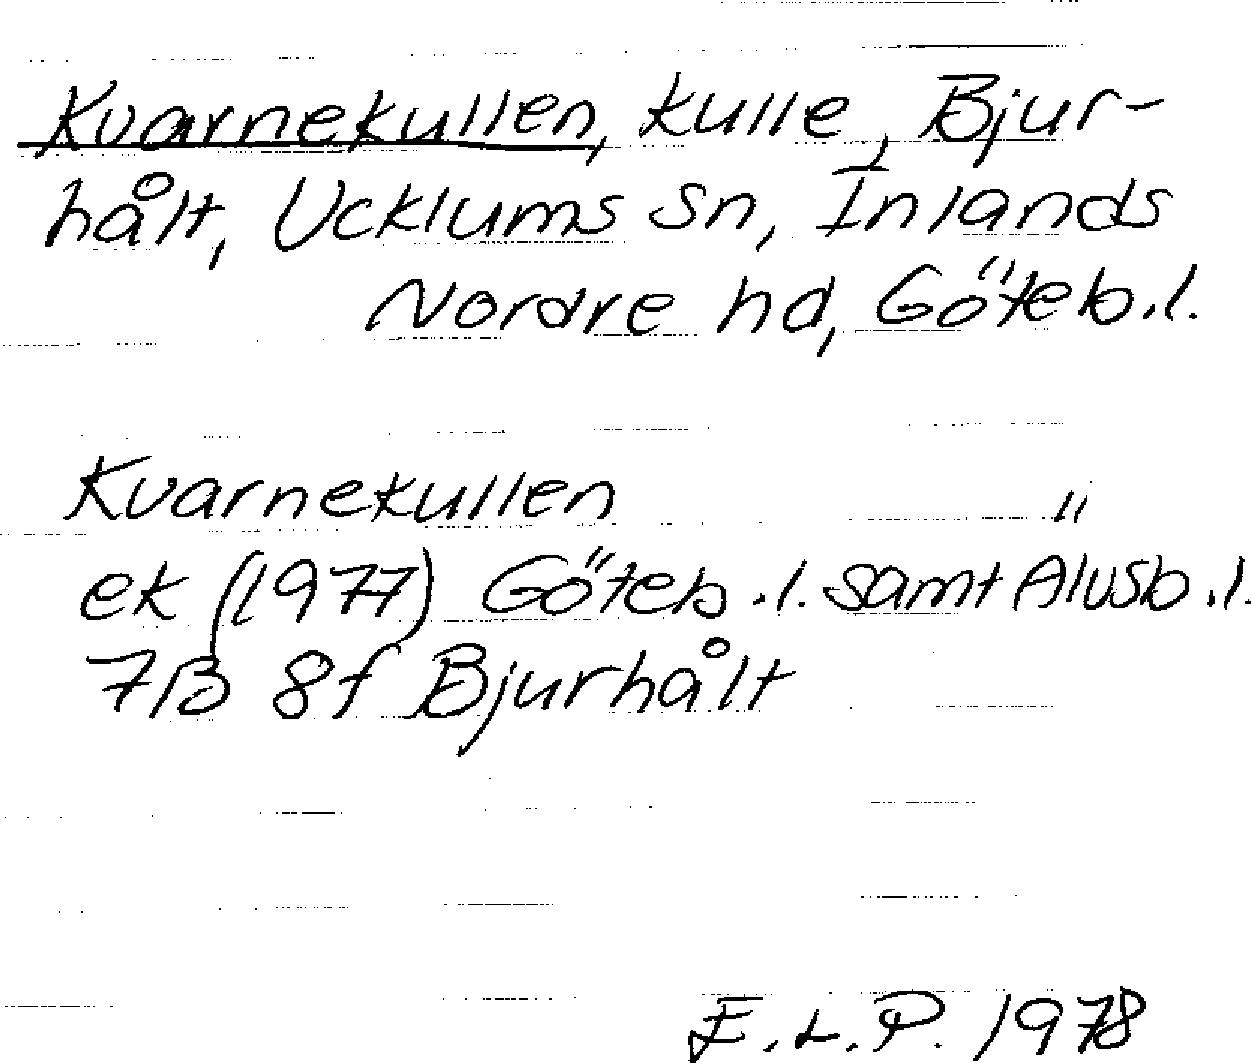 Kvarnekullen, kulle, Bjur-
hålt, Ucklums sn, Inlands
Nordre hd, Göteb.l.
Kvarnekullen
ek (1977) Göteb.l. samt Älvsb.l.
7B 8f Bjurhålt
E.L.P. 1978